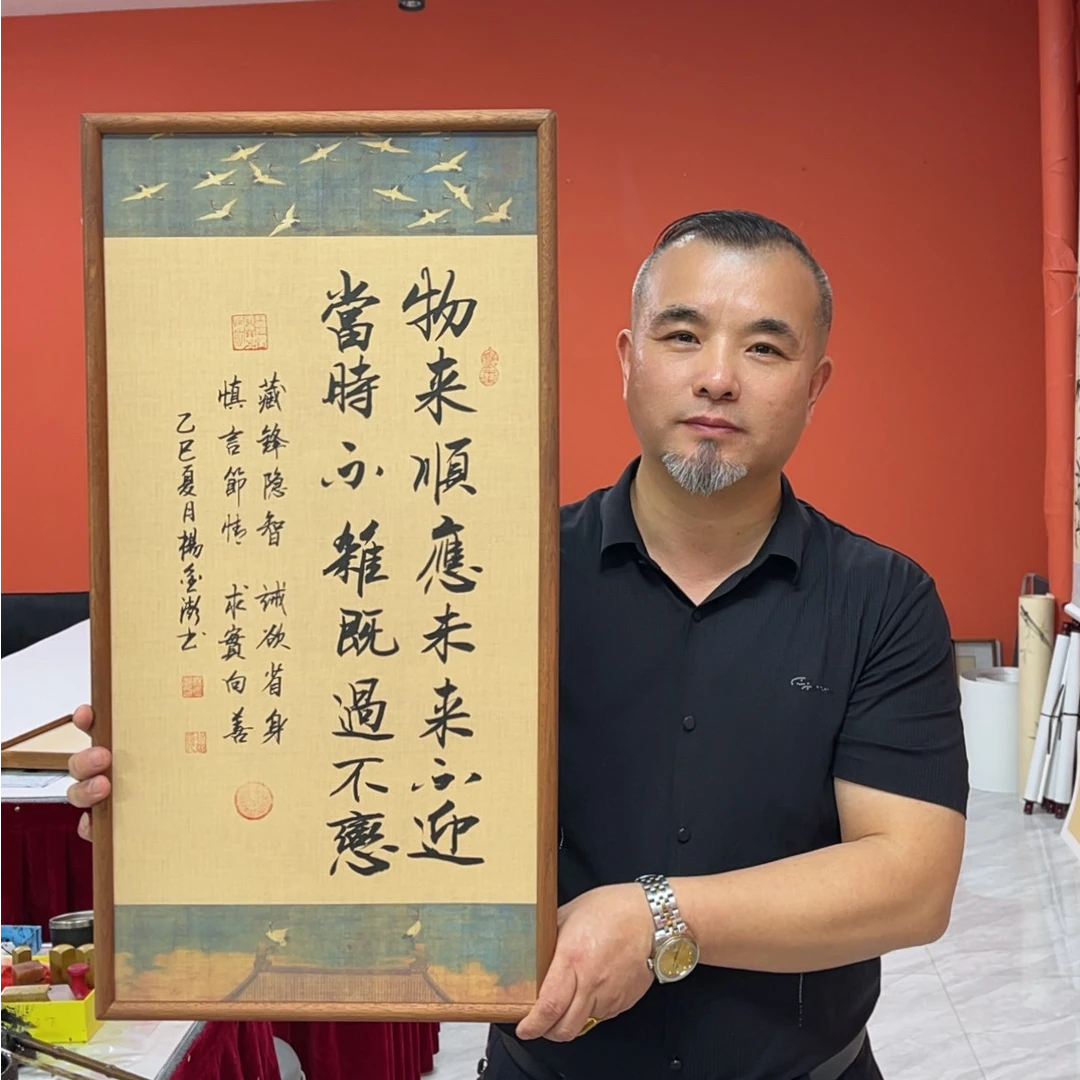 物来順應未来不迎
當時不雜既過不戀
藏鋒隐智 誡欲省身
慎言節情 求實向善
乙巳夏月楊金澎书